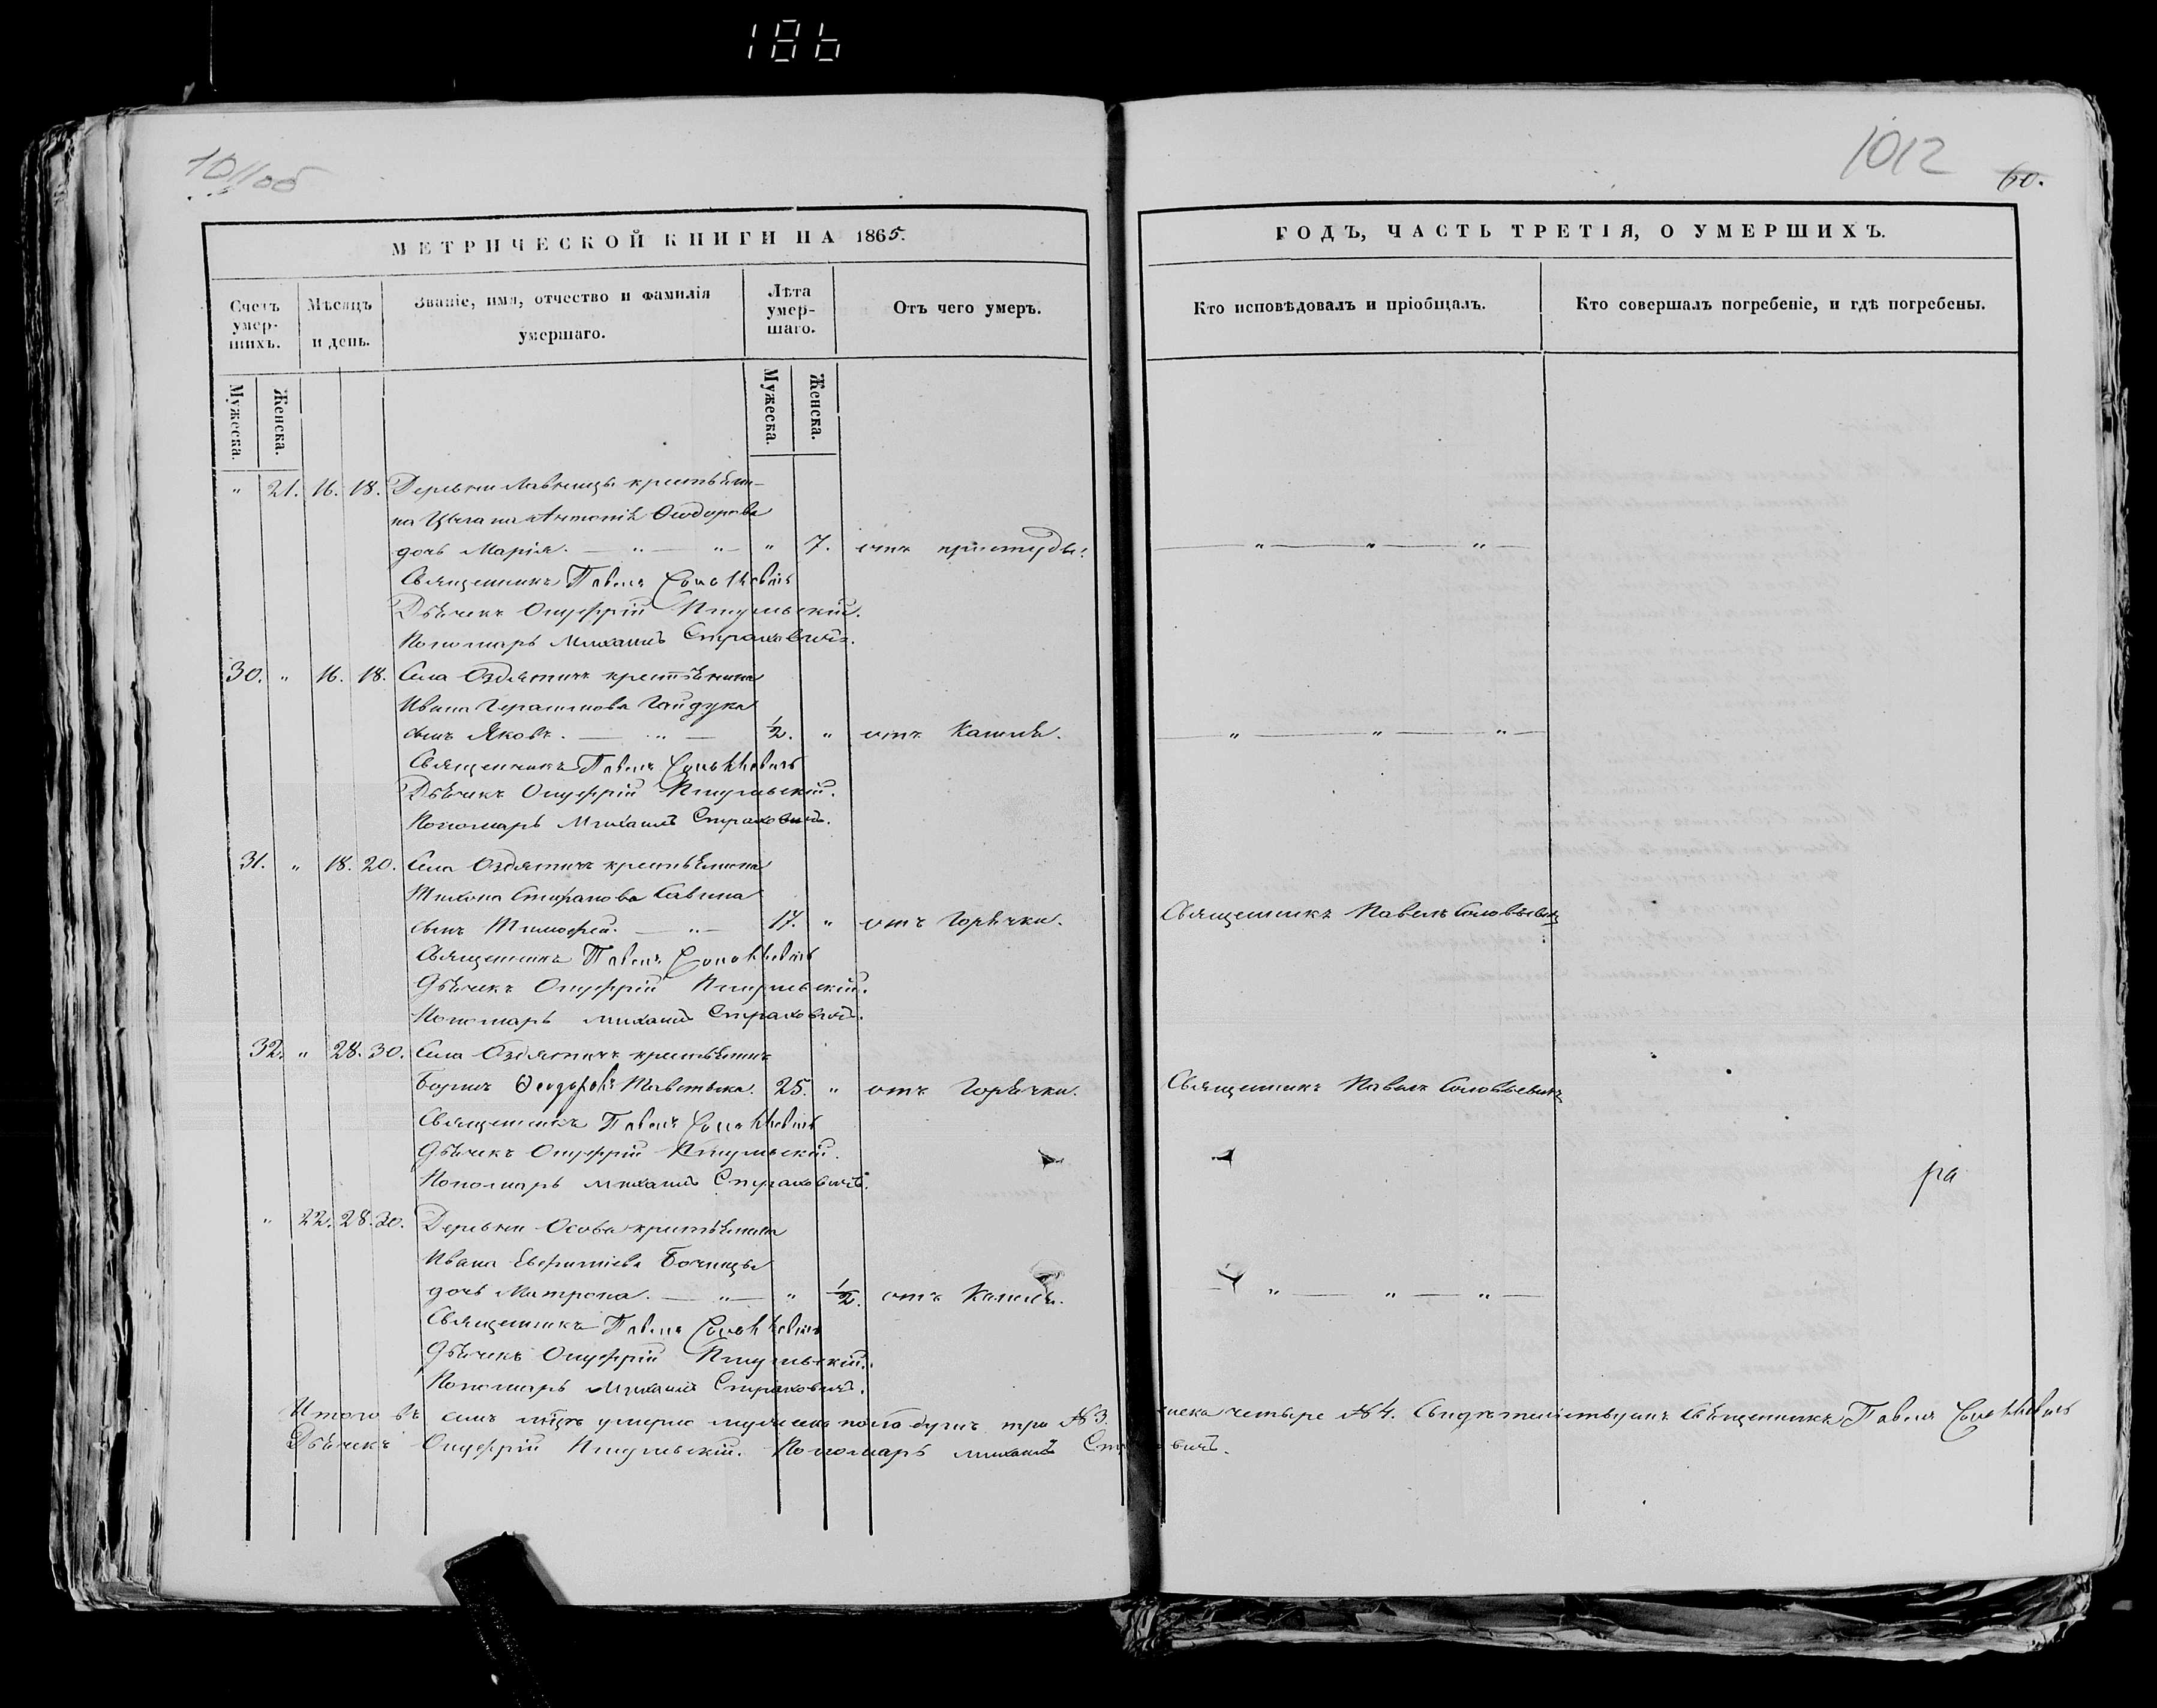 186
1011 об
1012
60.
МЕТРИЧЕСКОЙ КНИГИ НА 1865.
Счетъ умершихъ.
Мѣсяцъ и день.
Званіе, имя, отчество и фамилія умершаго.
Лѣта умершаго.
Отъ чего умеръ.
Мужеска. Женска.
Мужеска. Женска.
" 21. 16. 18. Деревни крестьяни-
на Цыгана Ѳеодорова
дочь Марія. — " — " — " 7. отъ простуды.
Священникъ Павелъ Соловьевичъ
Дьячекъ Онуфрій
Пономарь Михаилъ Страховичъ.
30. " 16. 18. Села Оздятичъ крестьянина
Ивана Герасимова Гайдука
сынъ Яковъ. — " — 1/2. " отъ Кашля.
Священникъ Павелъ Соловьевичъ
Дьячекъ Онуфрій
Пономарь Михаилъ Страховичъ.
31. " 18. 20. Села Оздятичъ крестьянина
Тихона Стефанова Савина
сынъ Тимофей. — " — 17. " отъ Горячки.
Священникъ Павелъ Соловьевичъ
Дьячекъ Онуфрій
Пономарь Михаилъ Страховичъ.
32. " 28. 30. Села Оздятичъ крестьянинъ
Борисъ Ѳеодоровъ 25. " отъ Горячки.
Священникъ Павелъ Соловьевичъ
Дьячекъ Онуфрій
Пономарь Михаилъ Страховичъ.
" 22. 28. 30. Деревни Осова крестьянина
Ивана
дочь Матрона. — " — " 1/2. отъ Кашля.
Священникъ Павелъ Соловьевичъ
Дьячекъ Онуфрій
Пономарь Михаилъ Страховичъ.
ГОДЪ, ЧАСТЬ ТРЕТІЯ, О УМЕРШИХЪ.
Кто исповѣдовалъ и пріобщалъ.
Кто совершалъ погребеніе, и гдѣ погребены.
— " — " — " —
— " — " — " —
Священникъ Павелъ Соловьевичъ
Священникъ Павелъ Соловьевичъ
ра
— " — " — " —
Итого въ семъ умерло три №3. четыре №4. Священникъ Павелъ Соловьевичъ
Дьячекъ Онуфрій Пономарь Михаилъ